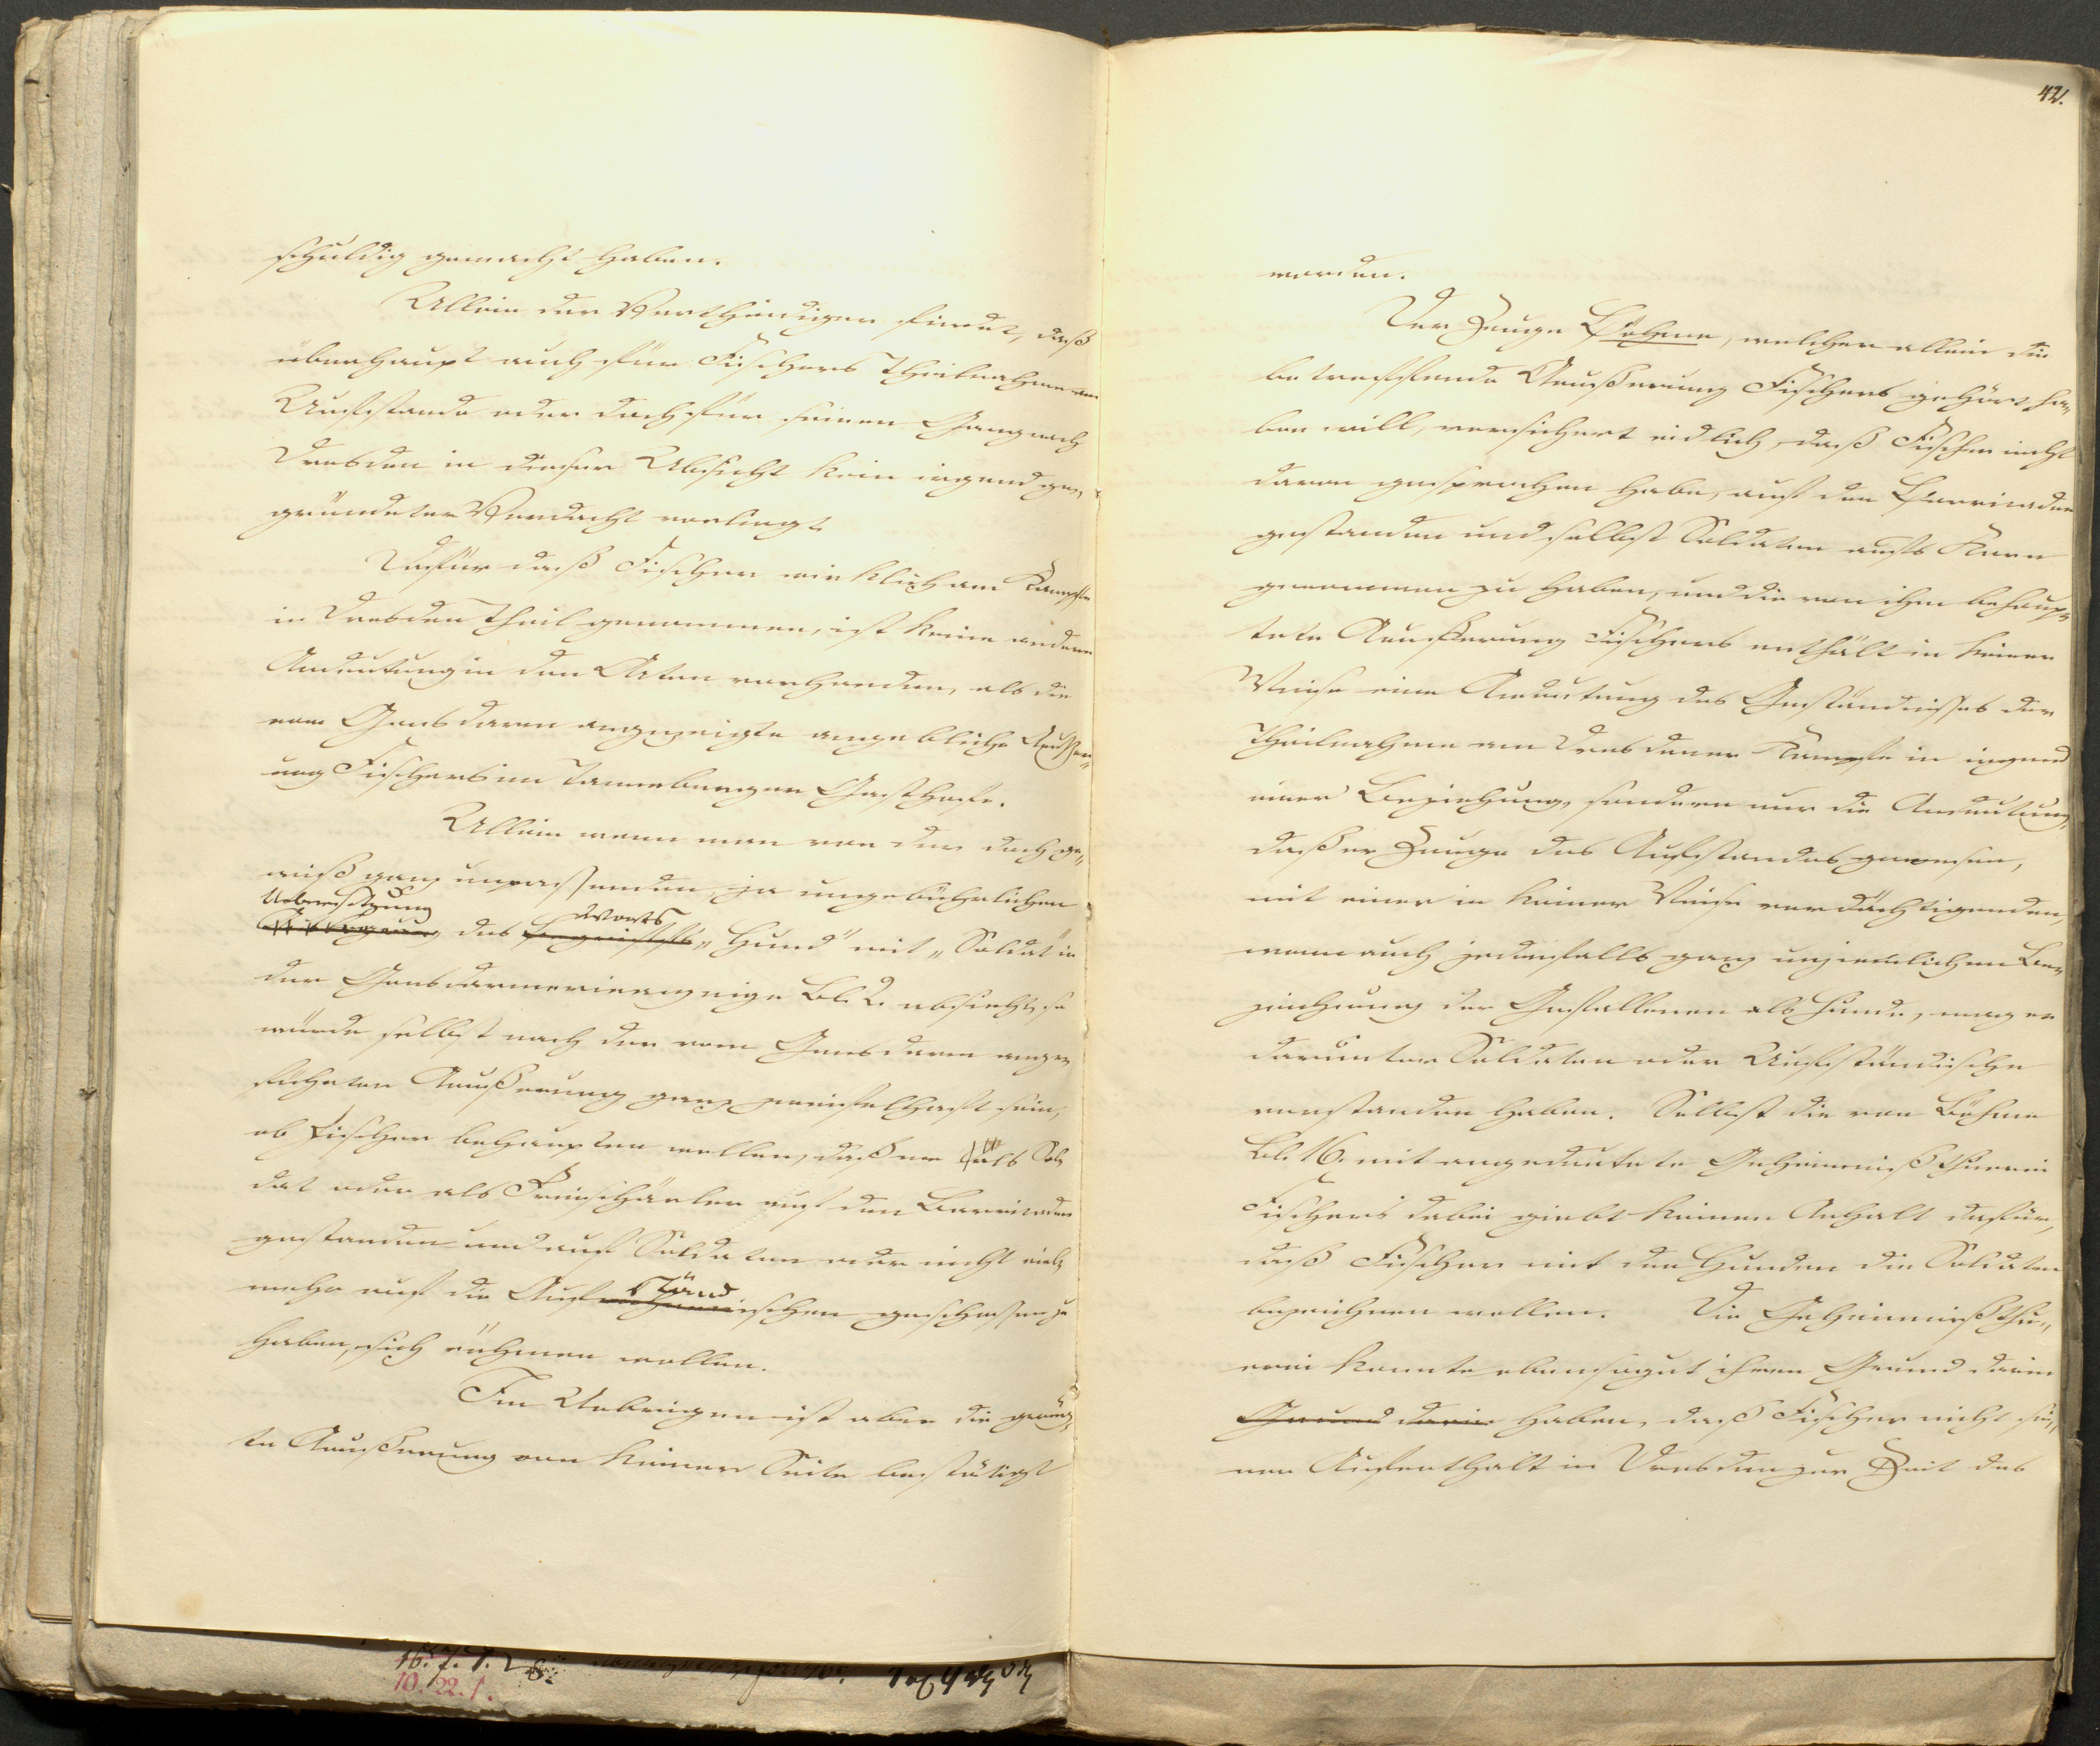 schuldig gemacht haben.
Allein der Vertheidiger findet, daß
überhaupt auch für Fischers Theilnahme am
Aufstande oder doch für seinen Gang nach
Dresden in dieser Absicht kein irgend ge-
gründeter Verdacht vorliegt.
Dafür daß Fischer wirklich am Kampfe
in Dresden Theil genommen, ist keine andere
Andeutung in den Akten vorhanden, als die
vom Gensdarm angezeigte angebliche Aeußer-
ung Fischers im Tanneberger Gasthofe.
Allein wenn man von der doch ge-
wiß ganz unpassenden, ja ungebührlichen
Uebersetzung
des Worts „Hund" mit „Soldat" in
der Gensdarmerieanzeige Bl. 2. absieht, so
würde selbst nach der vom Gensdarm ange-
führten Aeußerung ganz zweifelhaft sein,
ob Fischer behaupten wollen, daß er als Sol-
dat oder als Freischärler auf den Barricaden
gestanden und auf Soldaten oder nicht viel-
mehr auf die Aufständischen geschossen zu
haben, sich rühmen wollen.
Im Uebrigen ist aber die gerüg-
te Aeußerung von keiner Seite bestätigt
42.
worden.
Der Zeuge Böhme, welcher allein die
betreffende Aeußerung Fischers gehört ha-
ben will, versichert eidlich, daß Fischer nicht
davon gesprochen habe, auf den Barricaden
gestanden und selbst Soldaten aufs Korn
genommen zu haben, und die von ihm behaup-
tete Aeußerung Fischers enthält in keiner
Weise eine Andeutung des Geständnisses der
Theilnahme am Dresdener Kampfe in irgend
einer Beziehung, sondern nur die Andeutung,
daß er Zeuge des Aufstandes gewesen,
mit einer in keiner Weise verdächtigenden,
wenn auch jedenfalls ganz unziemlichen Be-
zeichnung der Gefallenen als Hunde, mag er
darunter Soldaten oder Aufständische
verstanden haben. Selbst die von Böhme
Bl. 16. mit angedeutete Geheimnißthuerei
Fischers dabei giebt keinen Anhalt dafür,
daß Fischer mit den Hunden die Soldaten
bezeichnen wollen. Die Geheimnißthu-
erei konnte ebensogut ihren Grund darin
Grund darin haben, daß Fischer nicht sei-
nen Aufenthalt in Dresden zur Zeit des
10. 22. 1.